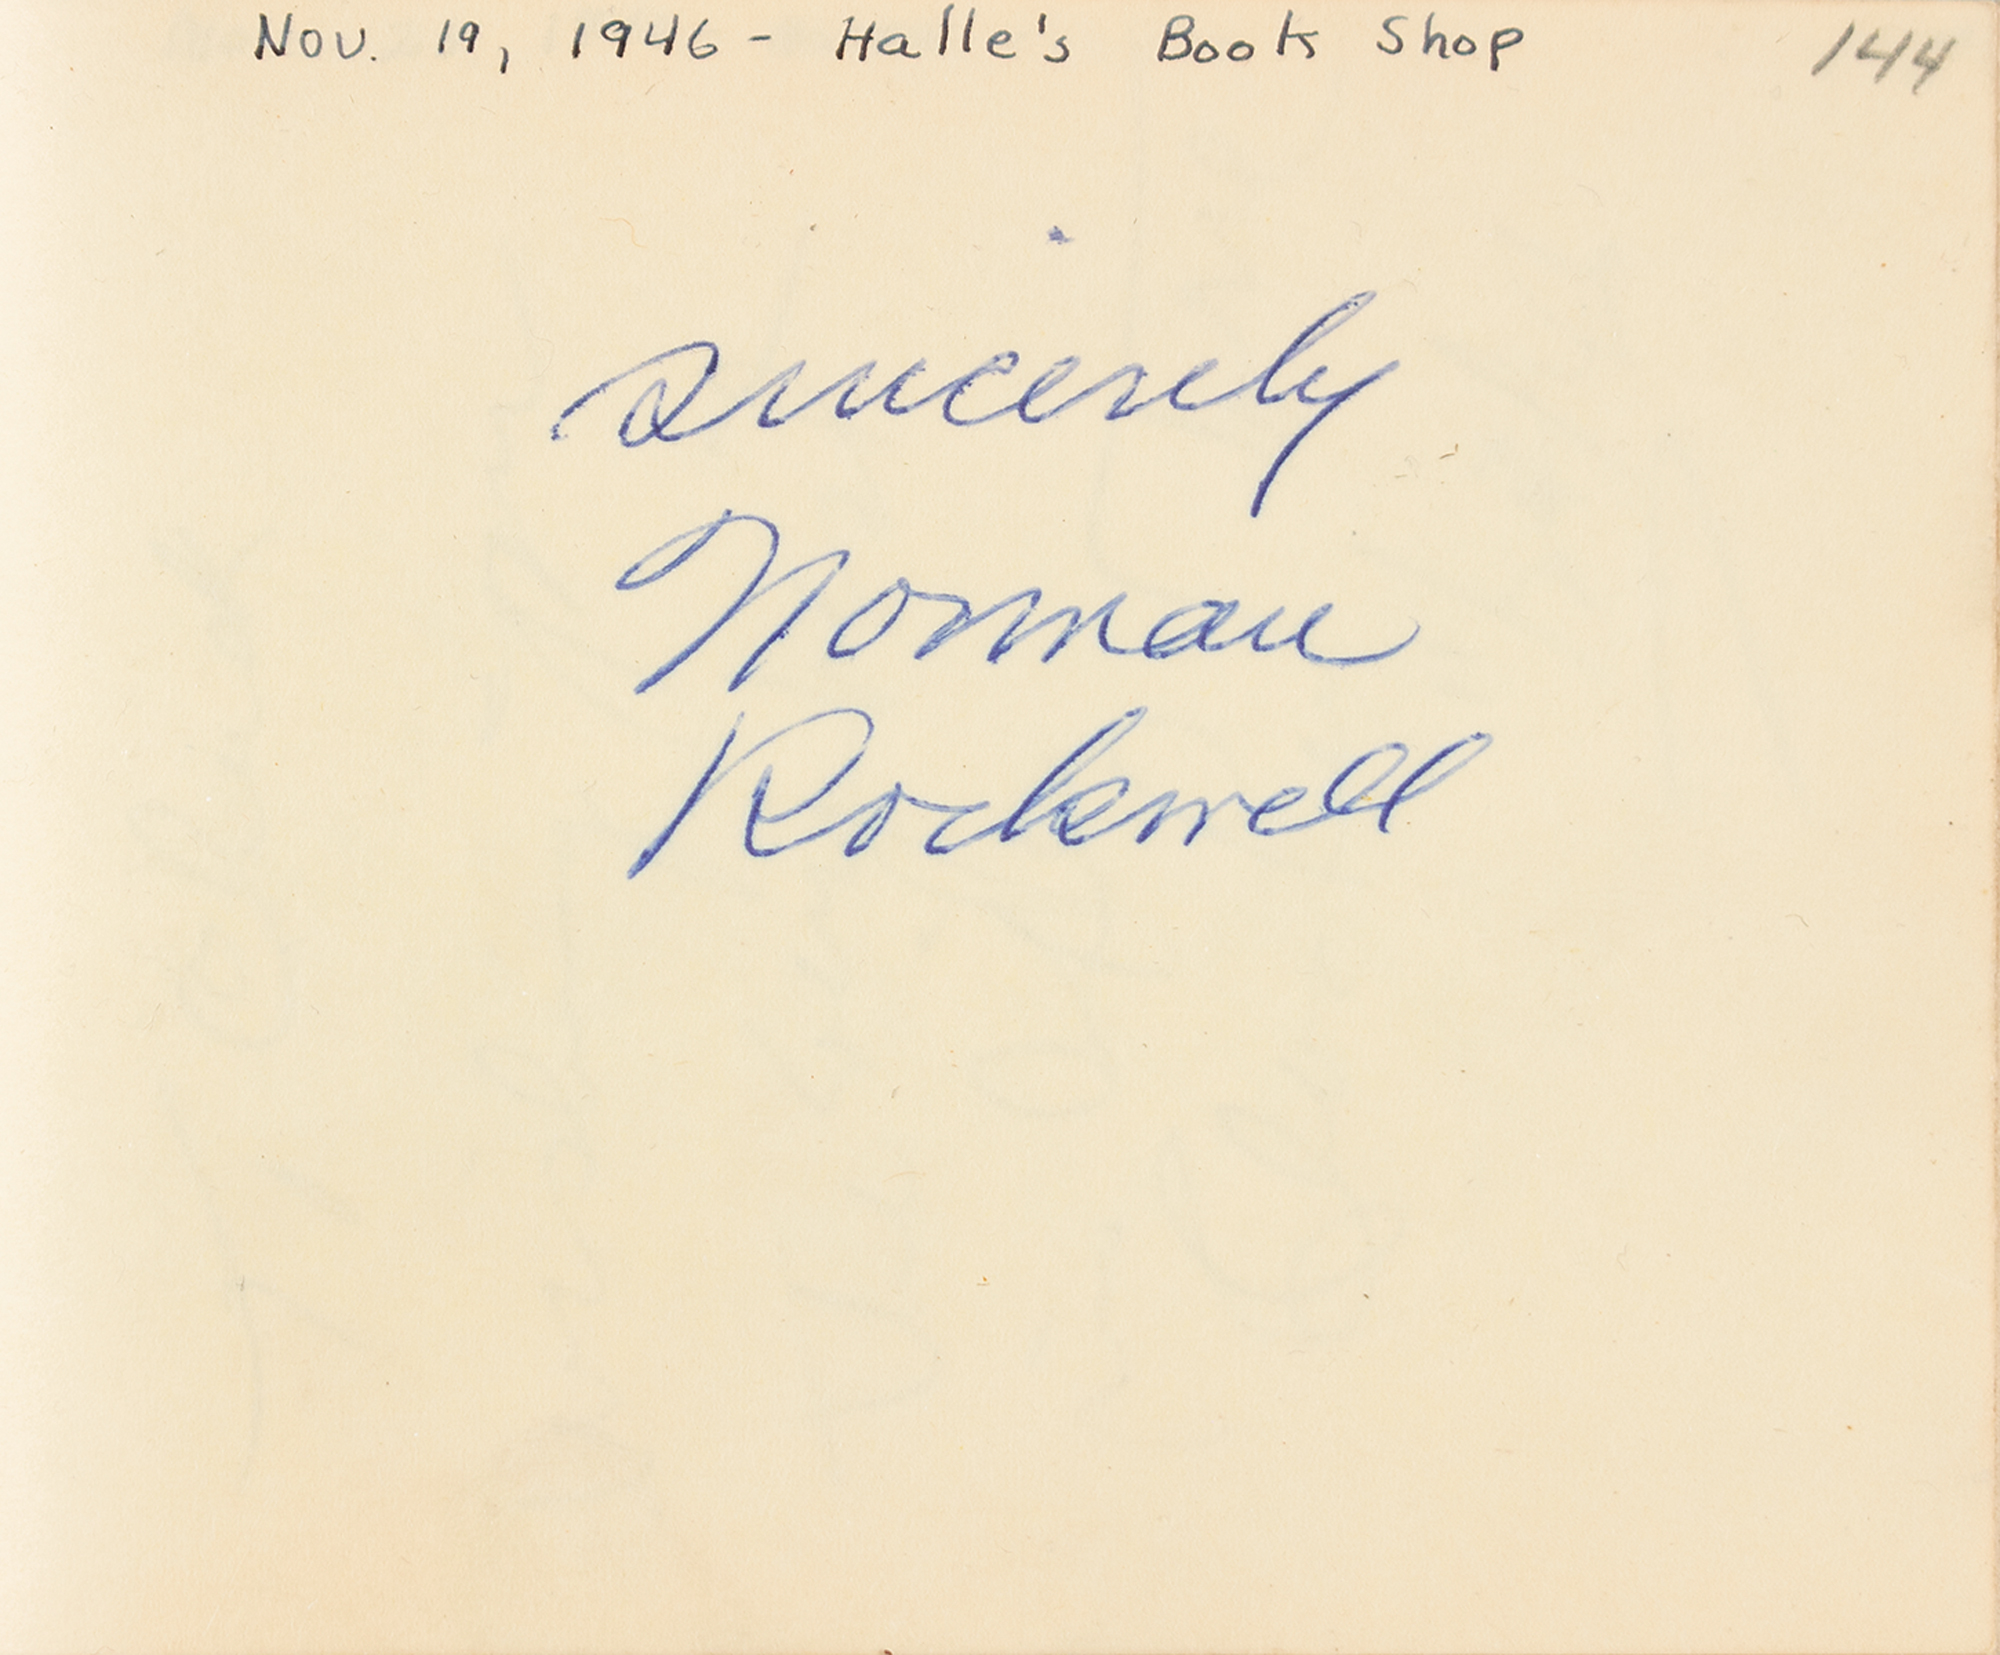 Nov. 19, 1946 - Halle's Book Shop 144
sincerely
Norman
Rockwell